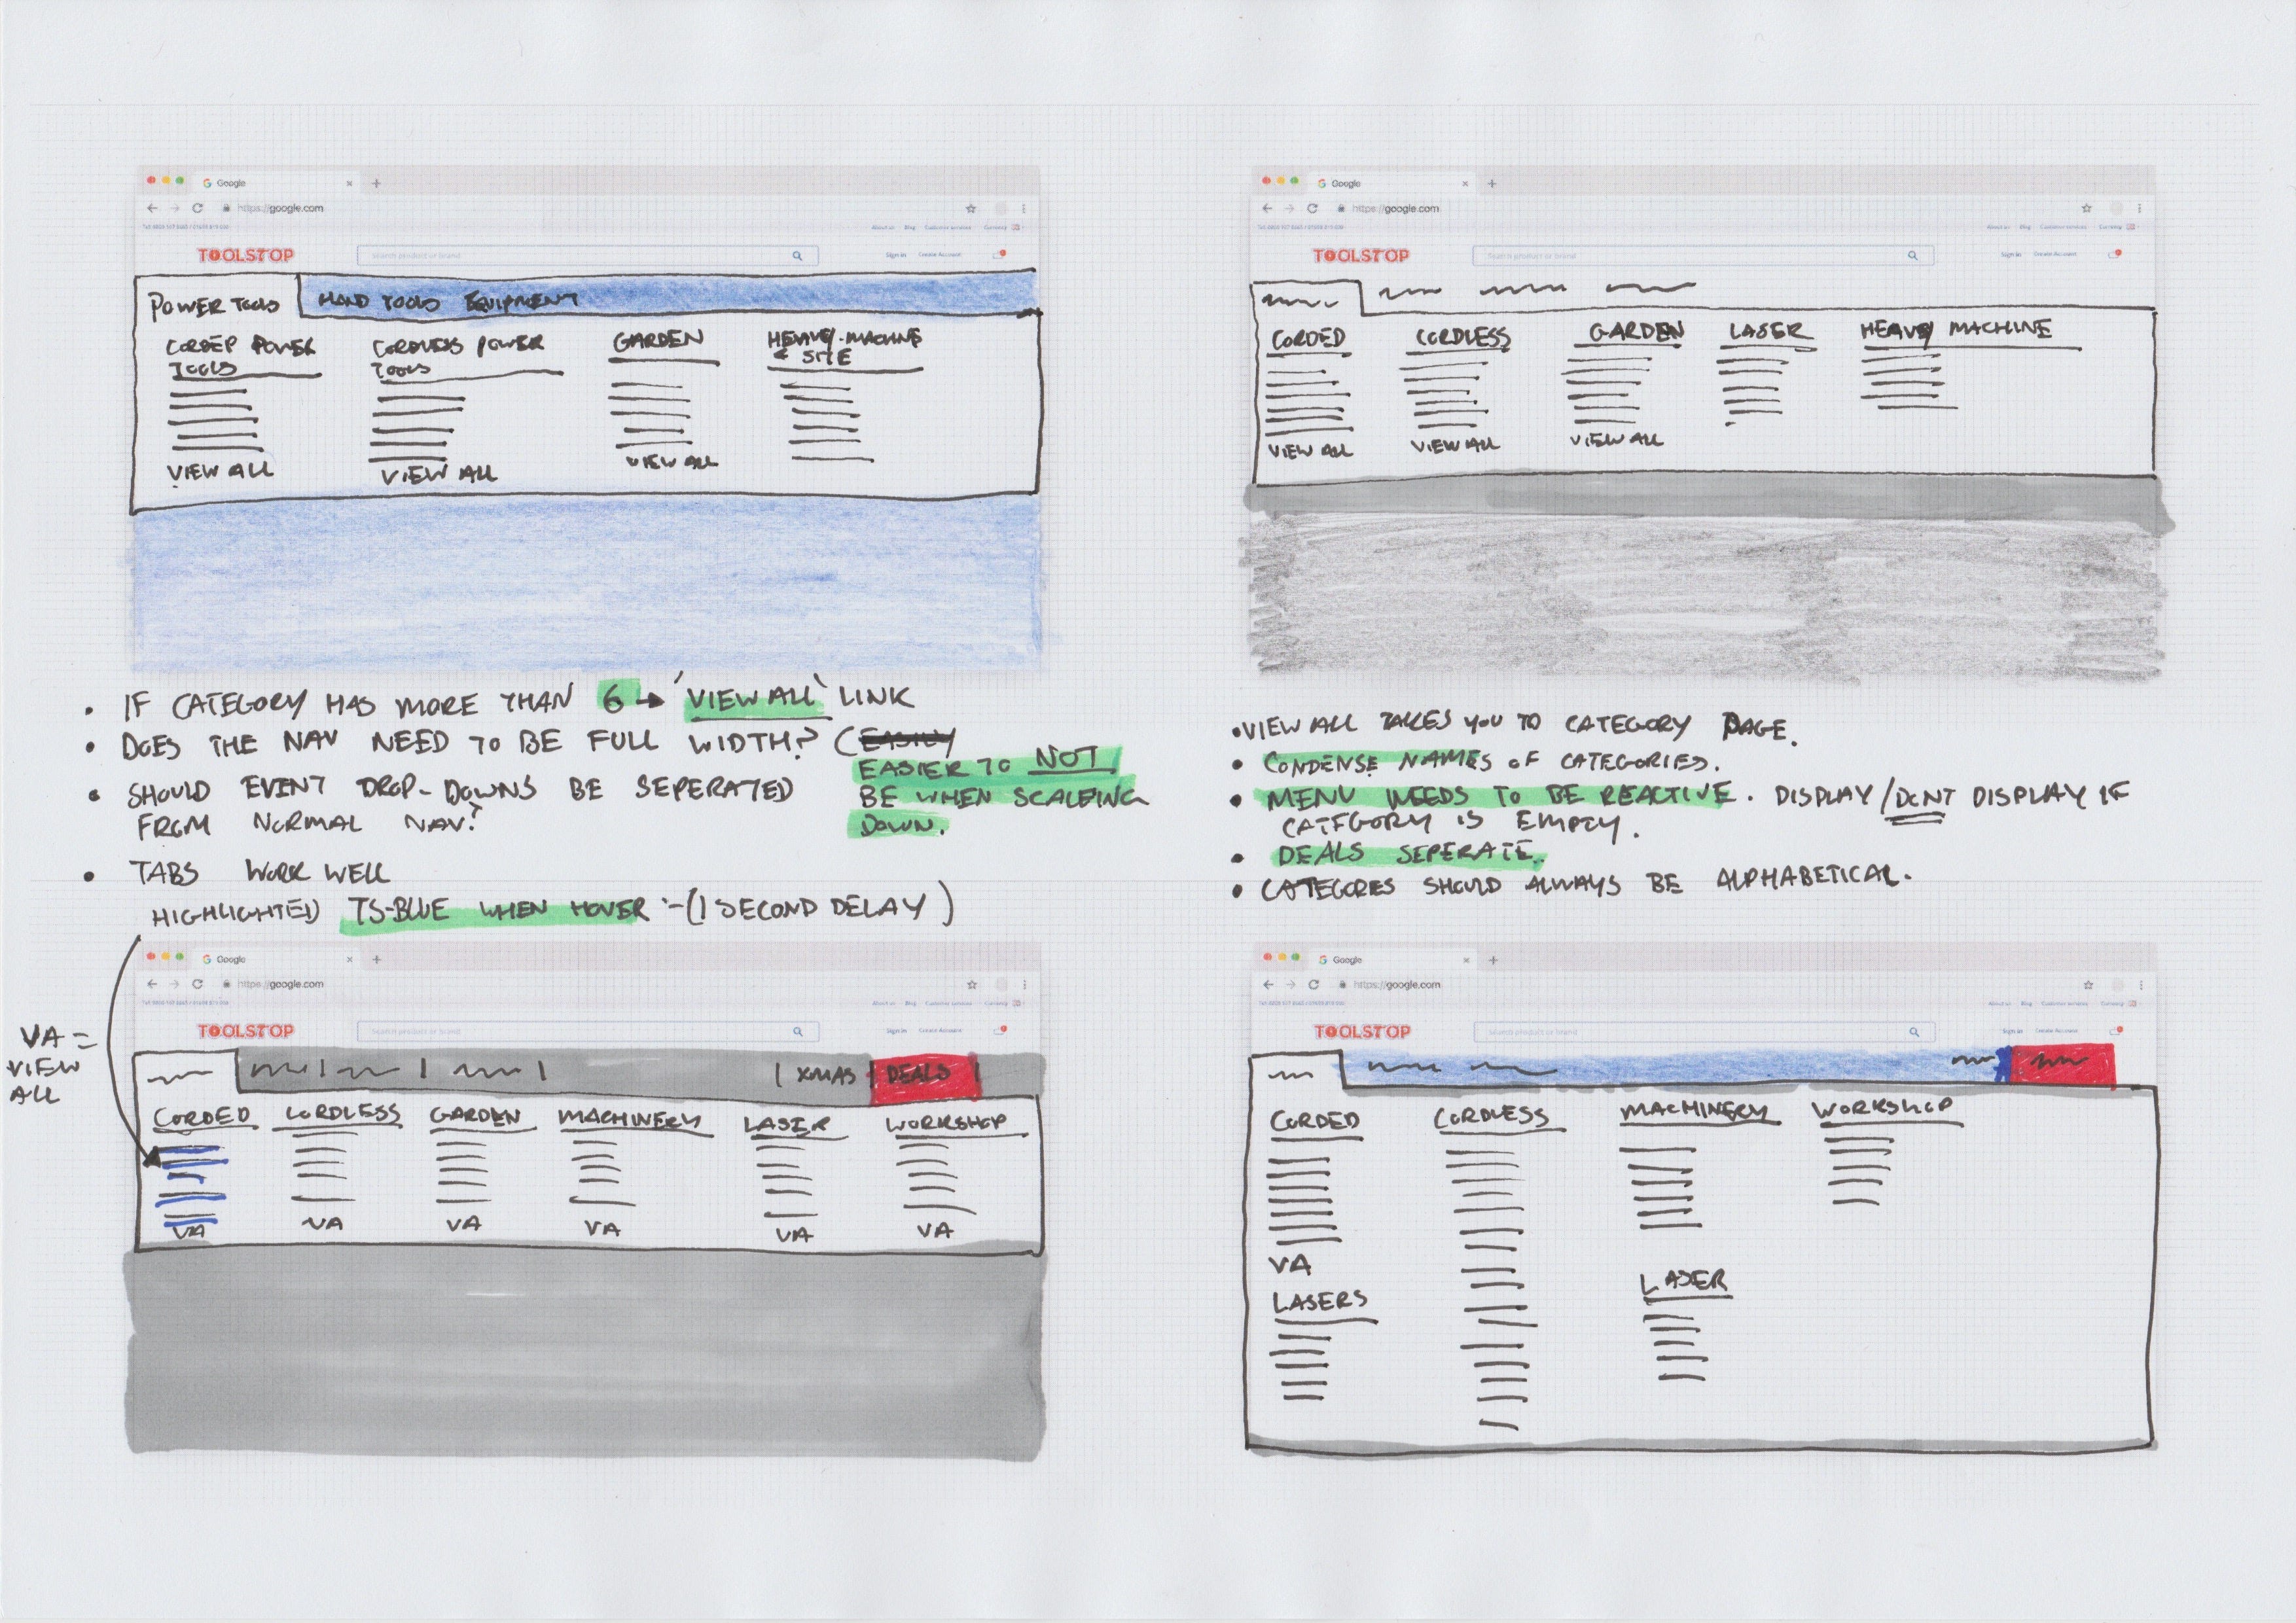 Google
https://google.com
About us Blog Customer services Currency
TOOLSTOP
Search product or brand
Sign in Create Account
POWER TOOLS
HAND TOOLS EQUIPMENT
CORDED POWER TOOLS
CORDLESS POWER TOOLS
GARDEN
HEAVY-MACHINE & SITE
VIEW ALL
VIEW ALL
VIEW ALL
Google
https://google.com
About us Blog Customer services Currency
TOOLSTOP
Search product or brand
Sign in Create Account
CORDED
CORDLESS
GARDEN
LASER
HEAVY MACHINE
VIEW ALL
VIEW ALL
VIEW ALL
• IF CATEGORY HAS MORE THAN 6 → 'VIEW ALL' LINK
• DOES THE NAV NEED TO BE FULL WIDTH? (EASILY
EASIER TO NOT
BE WHEN SCALEING
DOWN.
• SHOULD EVENT DROP-DOWNS BE SEPERATED
FROM NORMAL NAV?
• TABS WORK WELL
HIGHLIGHTED TS-BLUE WHEN HOVER :-(1 SECOND DELAY)
• VIEW ALL TAKES YOU TO CATEGORY PAGE.
• CONDENSE NAMES OF CATEGORIES.
• MENU NEEDS TO BE REACTIVE. DISPLAY/DONT DISPLAY IF
CATEGORY IS EMPTY.
• DEALS SEPERATE.
• CATEGORIES SHOULD ALWAYS BE ALPHABETICAL.
VA =
VIEW
ALL
Google
https://google.com
About us Blog Customer services Currency
TOOLSTOP
Search product or brand
Sign in Create Account
XMAS DEALS
CORDED
CORDLESS
GARDEN
MACHINERY
LASER
WORKSHOP
VA
VA
VA
VA
VA
VA
Google
https://google.com
About us Blog Customer services Currency
TOOLSTOP
Search product or brand
Sign in Create Account
CORDED
CORDLESS
MACHINERY
WORKSHOP
VA
LASERS
LASER